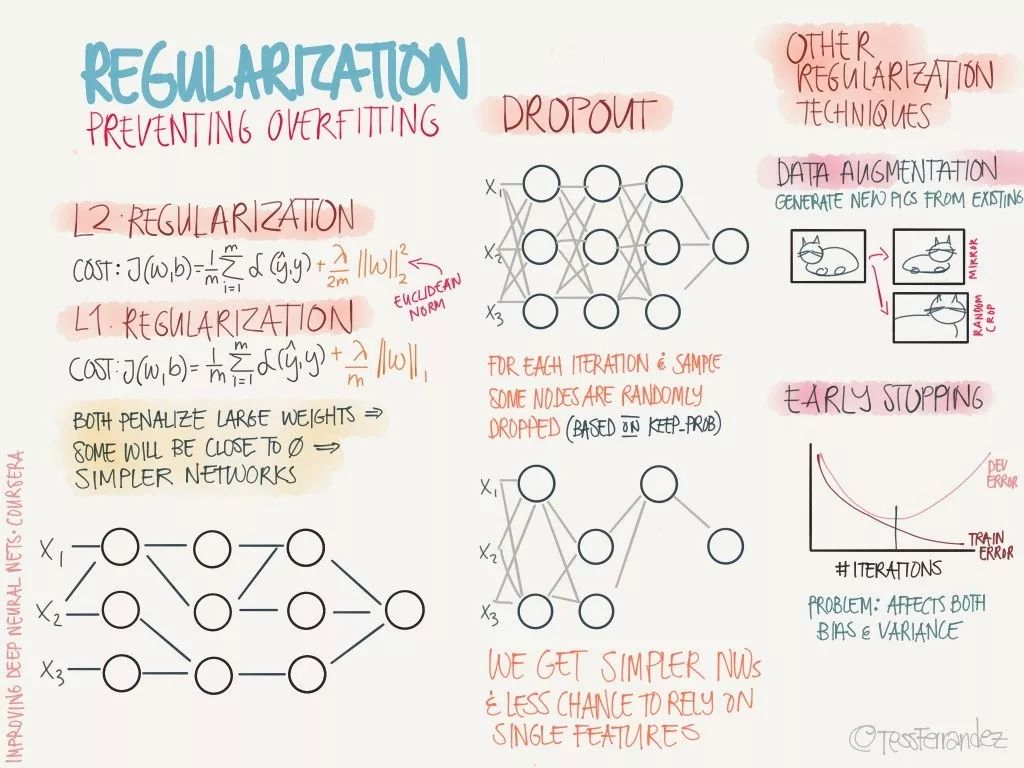 REGULARIZATION
PREVENTING OVERFITTING
L2 · REGULARIZATION
COST: J(w,b) = 1/m ∑ᵢ₌₁ᵐ ℒ(ŷ,y) + λ/2m ||w||₂²
EUCLIDEAN
NORM
L1 · REGULARIZATION
COST: J(w,b) = 1/m ∑ᵢ₌₁ᵐ ℒ(ŷ,y) + λ/m ||w||₁
BOTH PENALIZE LARGE WEIGHTS ⇒
SOME WILL BE CLOSE TO Ø ⇒
SIMPLER NETWORKS
X₁
X₂
X₃
IMPROVING DEEP NEURAL NETS · COURSERA
DROPOUT
X₁
X₂
X₃
FOR EACH ITERATION & SAMPLE
SOME NODES ARE RANDOMLY
DROPPED (BASED ON KEEP_PROB)
X₁
X₂
X₃
WE GET SIMPLER NWs
& LESS CHANCE TO RELY ON
SINGLE FEATURES
OTHER
REGULARIZATION
TECHNIQUES
DATA AUGMENTATION
GENERATE NEW PICS FROM EXISTING
MIRROR
RANDOM
CROP
EARLY STOPPING
DEV
ERROR
TRAIN
ERROR
# ITERATIONS
PROBLEM: AFFECTS BOTH
BIAS & VARIANCE
@TessFerrandez